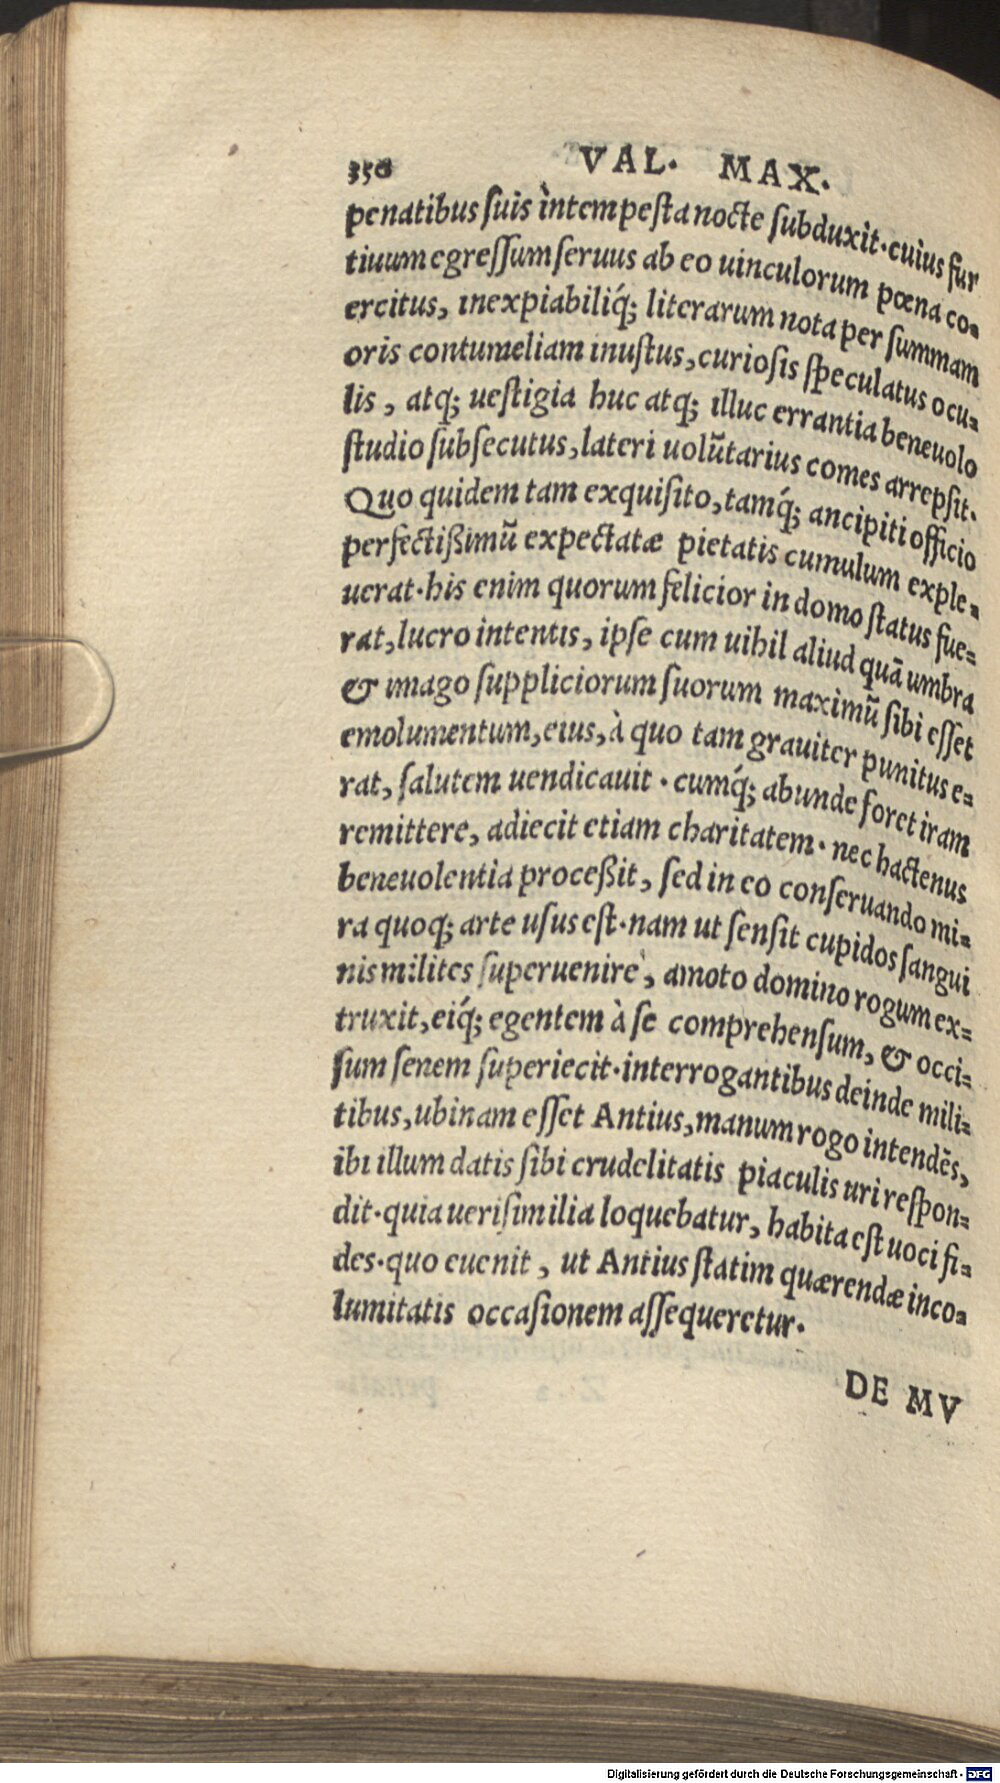 350 VAL. MAX.
penatibus suis intempesta nocte subduxit. cuius fur
tiuum egressum seruus ab eo uinculorum pœna co=
ercitus, inexpiabiliq́; literarum nota per summam
oris contumeliam inustus, curiosis speculatus ocu=
lis, atq; uestigia huc atq; illuc errantia beneuolo
studio subsecutus, lateri uolũtarius comes arrepsit.
Quo quidem tam exquisito, tamq́; ancipiti officio
perfectißimũ expectatæ pietatis cumulum exple=
uerat. his enim quorum felicior in domo status fue=
rat, lucro intentis, ipse cum uihil aliud quã umbra
& imago suppliciorum suorum maximũ sibi esset
emolumentum, eius, à quo tam grauiter punitus e=
rat, salutem uendicauit. cumq́; abunde foret iram
remittere, adiecit etiam charitatem. nec hactenus
beneuolentia proceßit, sed in eo conseruando mi=
ra quoq; arte usus est. nam ut sensit cupidos sangui
nis milites superuenire, amoto domino rogum ex=
truxit, eiq́; egentem à se comprehensum, & occi=
sum senem superiecit. interrogantibus deinde mili=
tibus, ubinam esset Antius, manum rogo intendẽs,
ibi illum datis sibi crudelitatis piaculis uri respon=
dit. quia uerisimilia loquebatur, habita est uoci fi=
des. quo euenit, ut Antius statim quærendæ inco=
lumitatis occasionem assequeretur.
DE MV
Digitalisierung gefördert durch die Deutsche Forschungsgemeinschaft - DFG